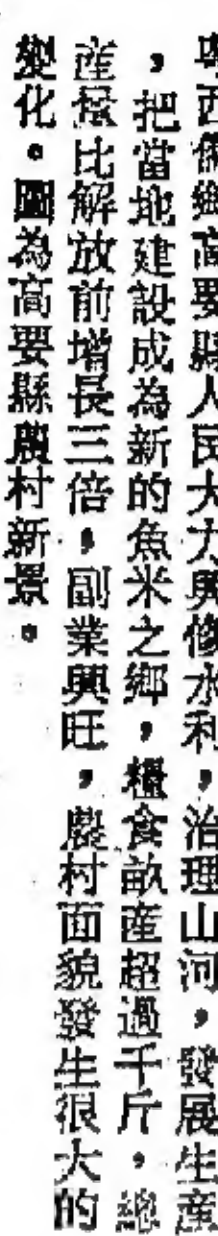 粵西僑鄉高要縣人民大力興修水利，治理山河，發展生產
，把當地建設成為新的魚米之鄉，糧食畝產超過千斤，總
產量比解放前增長三倍，副業興旺，農村面貌發生很大的
變化。圖為高要縣農村新景。